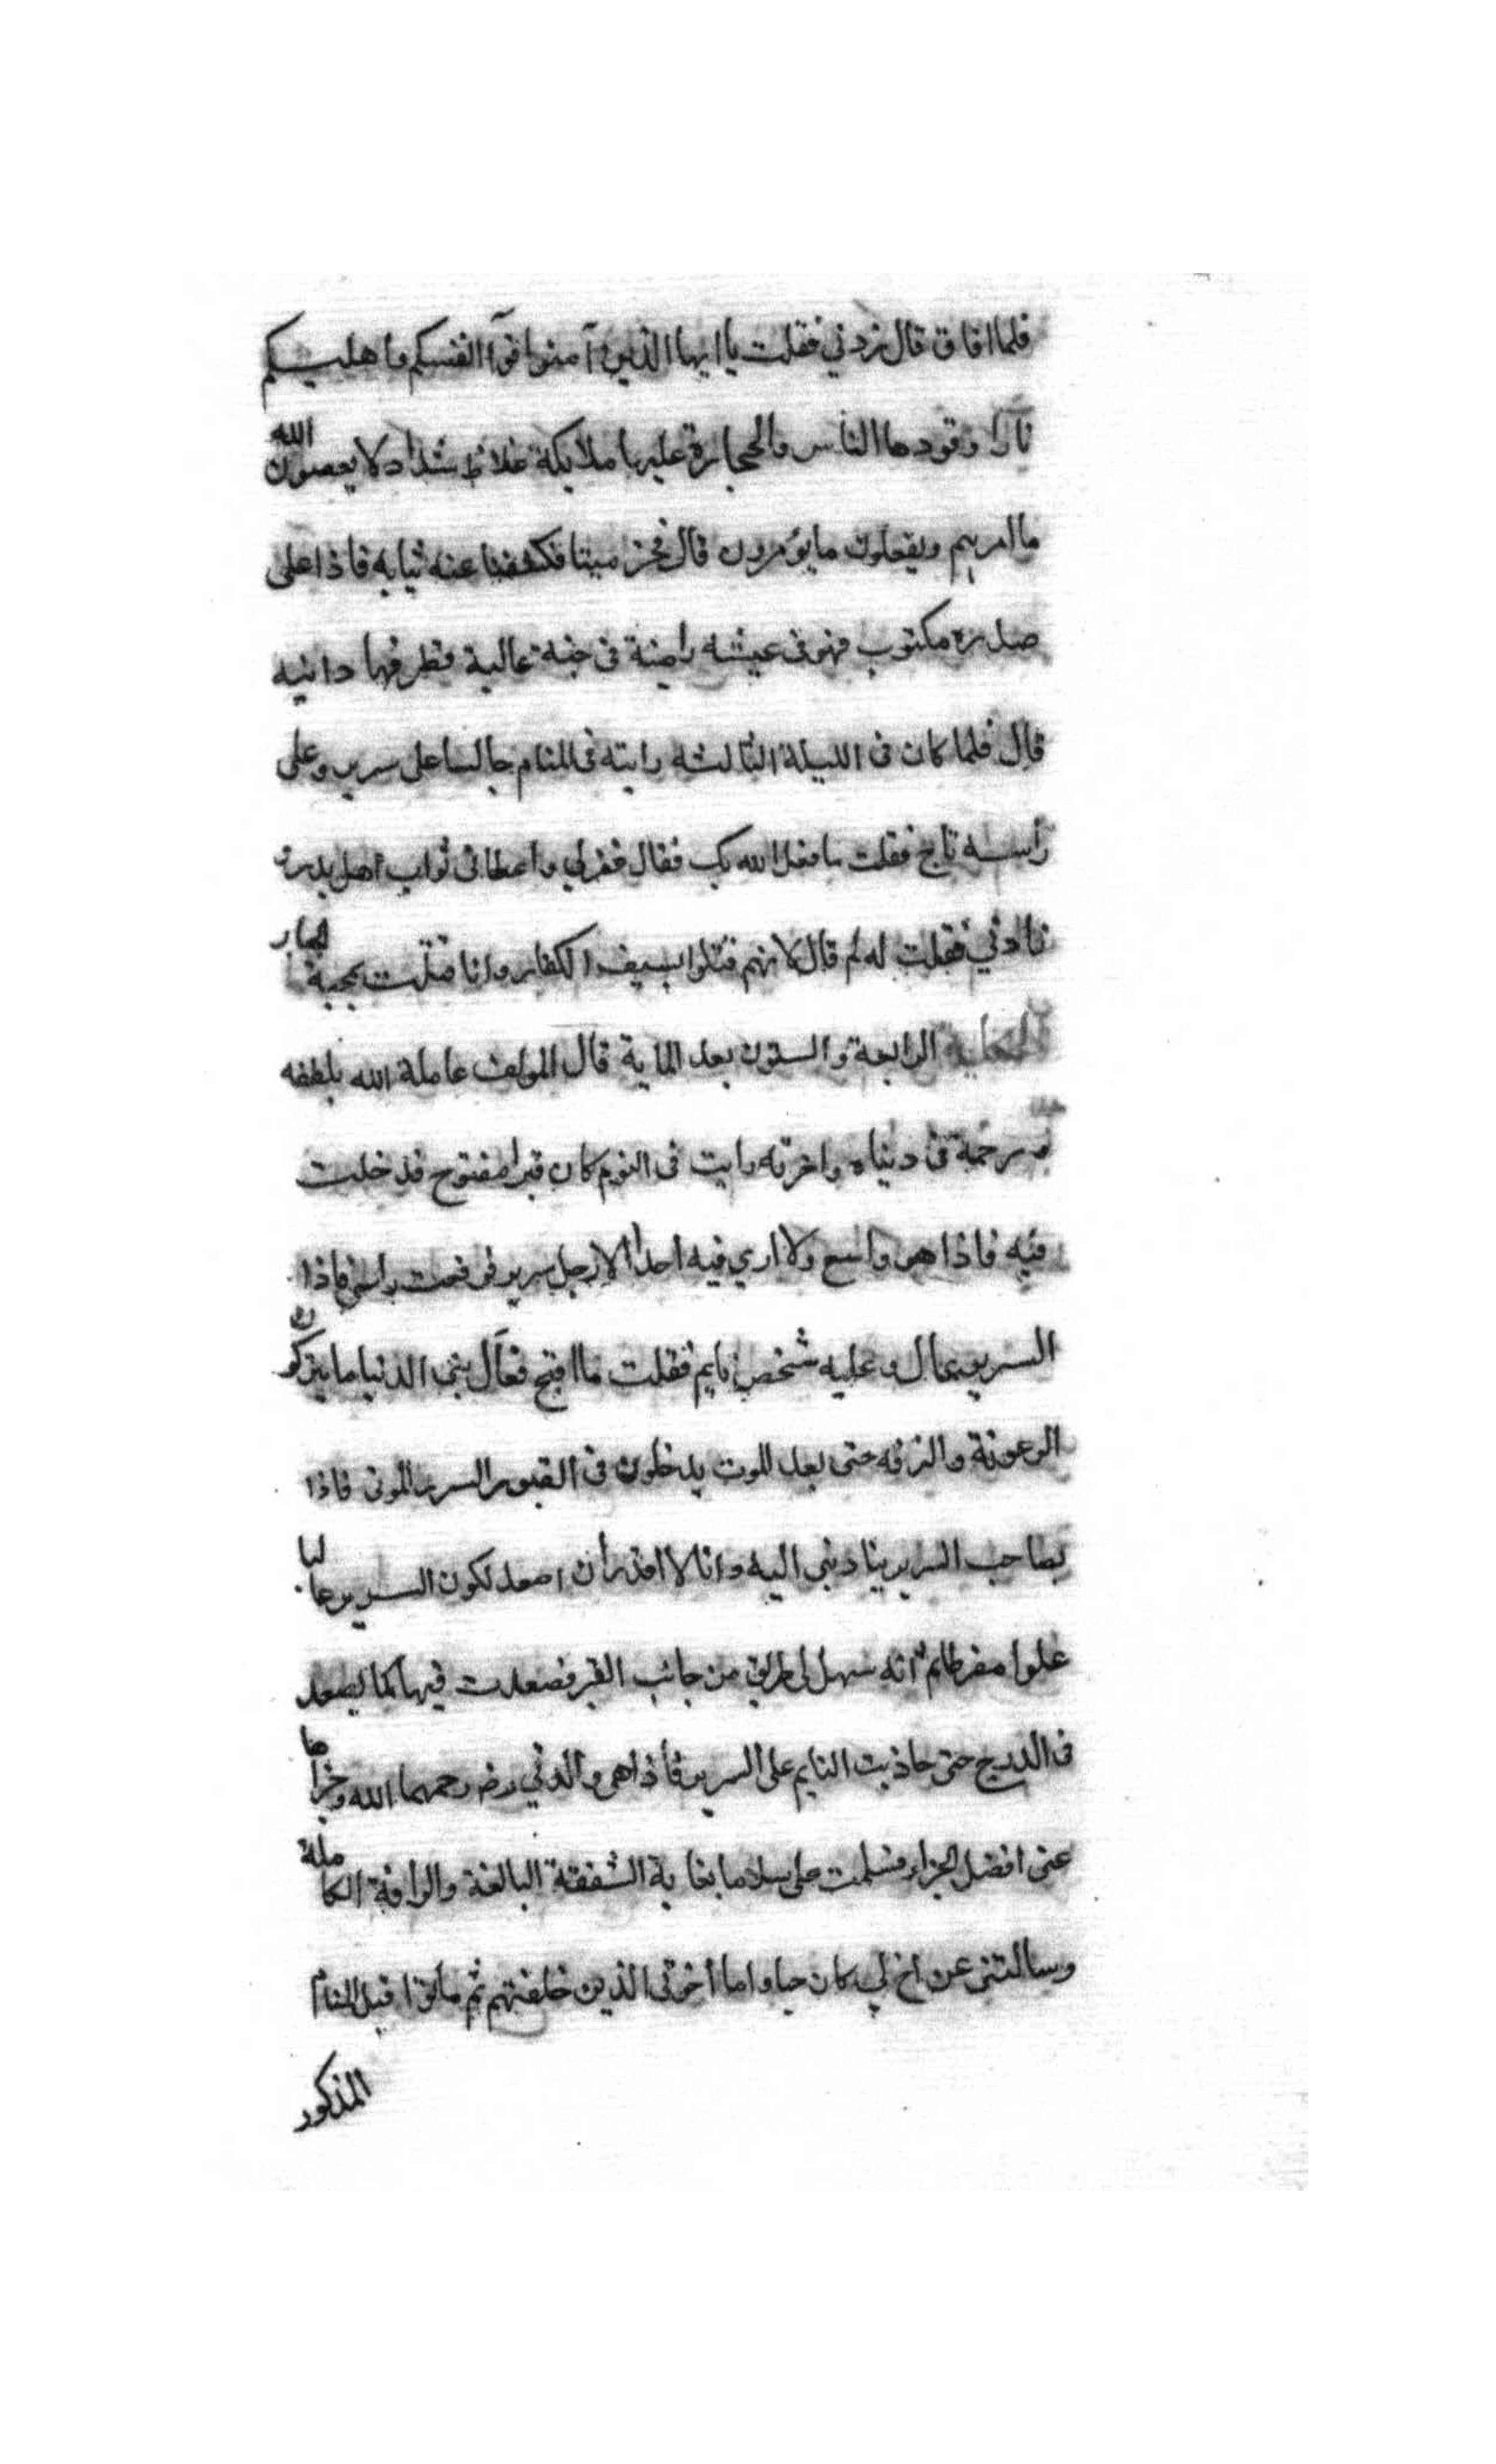 فلما افاق قال زدني فقلت يا ايها الذين آمنوا قوآ انفسكم واهليكم
نارا وقودها الناس والحجارة عليها ملايكة غلاظ شداد لا يعصون الله
ما امرهم ويفعلون ما يؤمرون قال فخر ميتا فكشفنا عنه ثيابه فاذا على
صدره مكتوب فهو فى عيشه راضية فى جنة عالية قطوفها دانيه
قال فلما كان فى الليلة الثالثه رايته فى المنام جالسا على سرير وعلى
رأسه تاج فقلت ما فعل الله بك فقال غفر لي واعطانى ثواب اهل بدر
زادني فقلت له لم قال لانهم قتلوا بسيف الكفار وانا قتلت بمحبة الجبار
الرابعة والستون بعد الماية قال المولف عامله الله بلطفه
ورحمة فى دنياه واخرته رايت فى النوم كان قبرا مفتوح فدخلت
فيه فاذا هو واسع ولا ارى فيه احدا الا رجل سرير فرفعت راسى فاذا
السرير عال وعليه شخص نايم فقلت ما اقبح فعال بنى الدنيا ما يتركون
الرعونة والترفه حتى بعد الموت يدخلون فى القبور السرر للموتى فاذا
بصاحب السرير ينادينى اليه وانا لا اقدر أن اصعد لكون السرير عاليا
علوا مفرطا ثم انه سهل لى طريق من جانب القبر فصعدت فيها كما يصعد
فى الدرج حتى حاذيت النايم على السرير فاذا هى والدتي رحمهما الله وجزاها
عنى افضل الجزاء فسلمت على سلاما بغاية الشفقة البالغة والرافة الكاملة
وسالتنى عن اخ لي كان حيا واما أخوتى الذين خلفتهم ثم ماتوا قبل المنام
المذكور